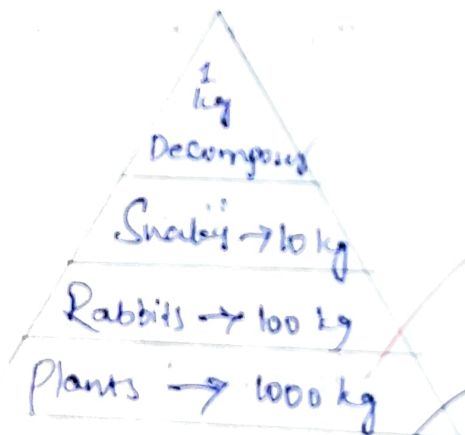 1
kg
Decomposers
Snakes → 10 kg
Rabbits → 100 kg
Plants → 1000 kg